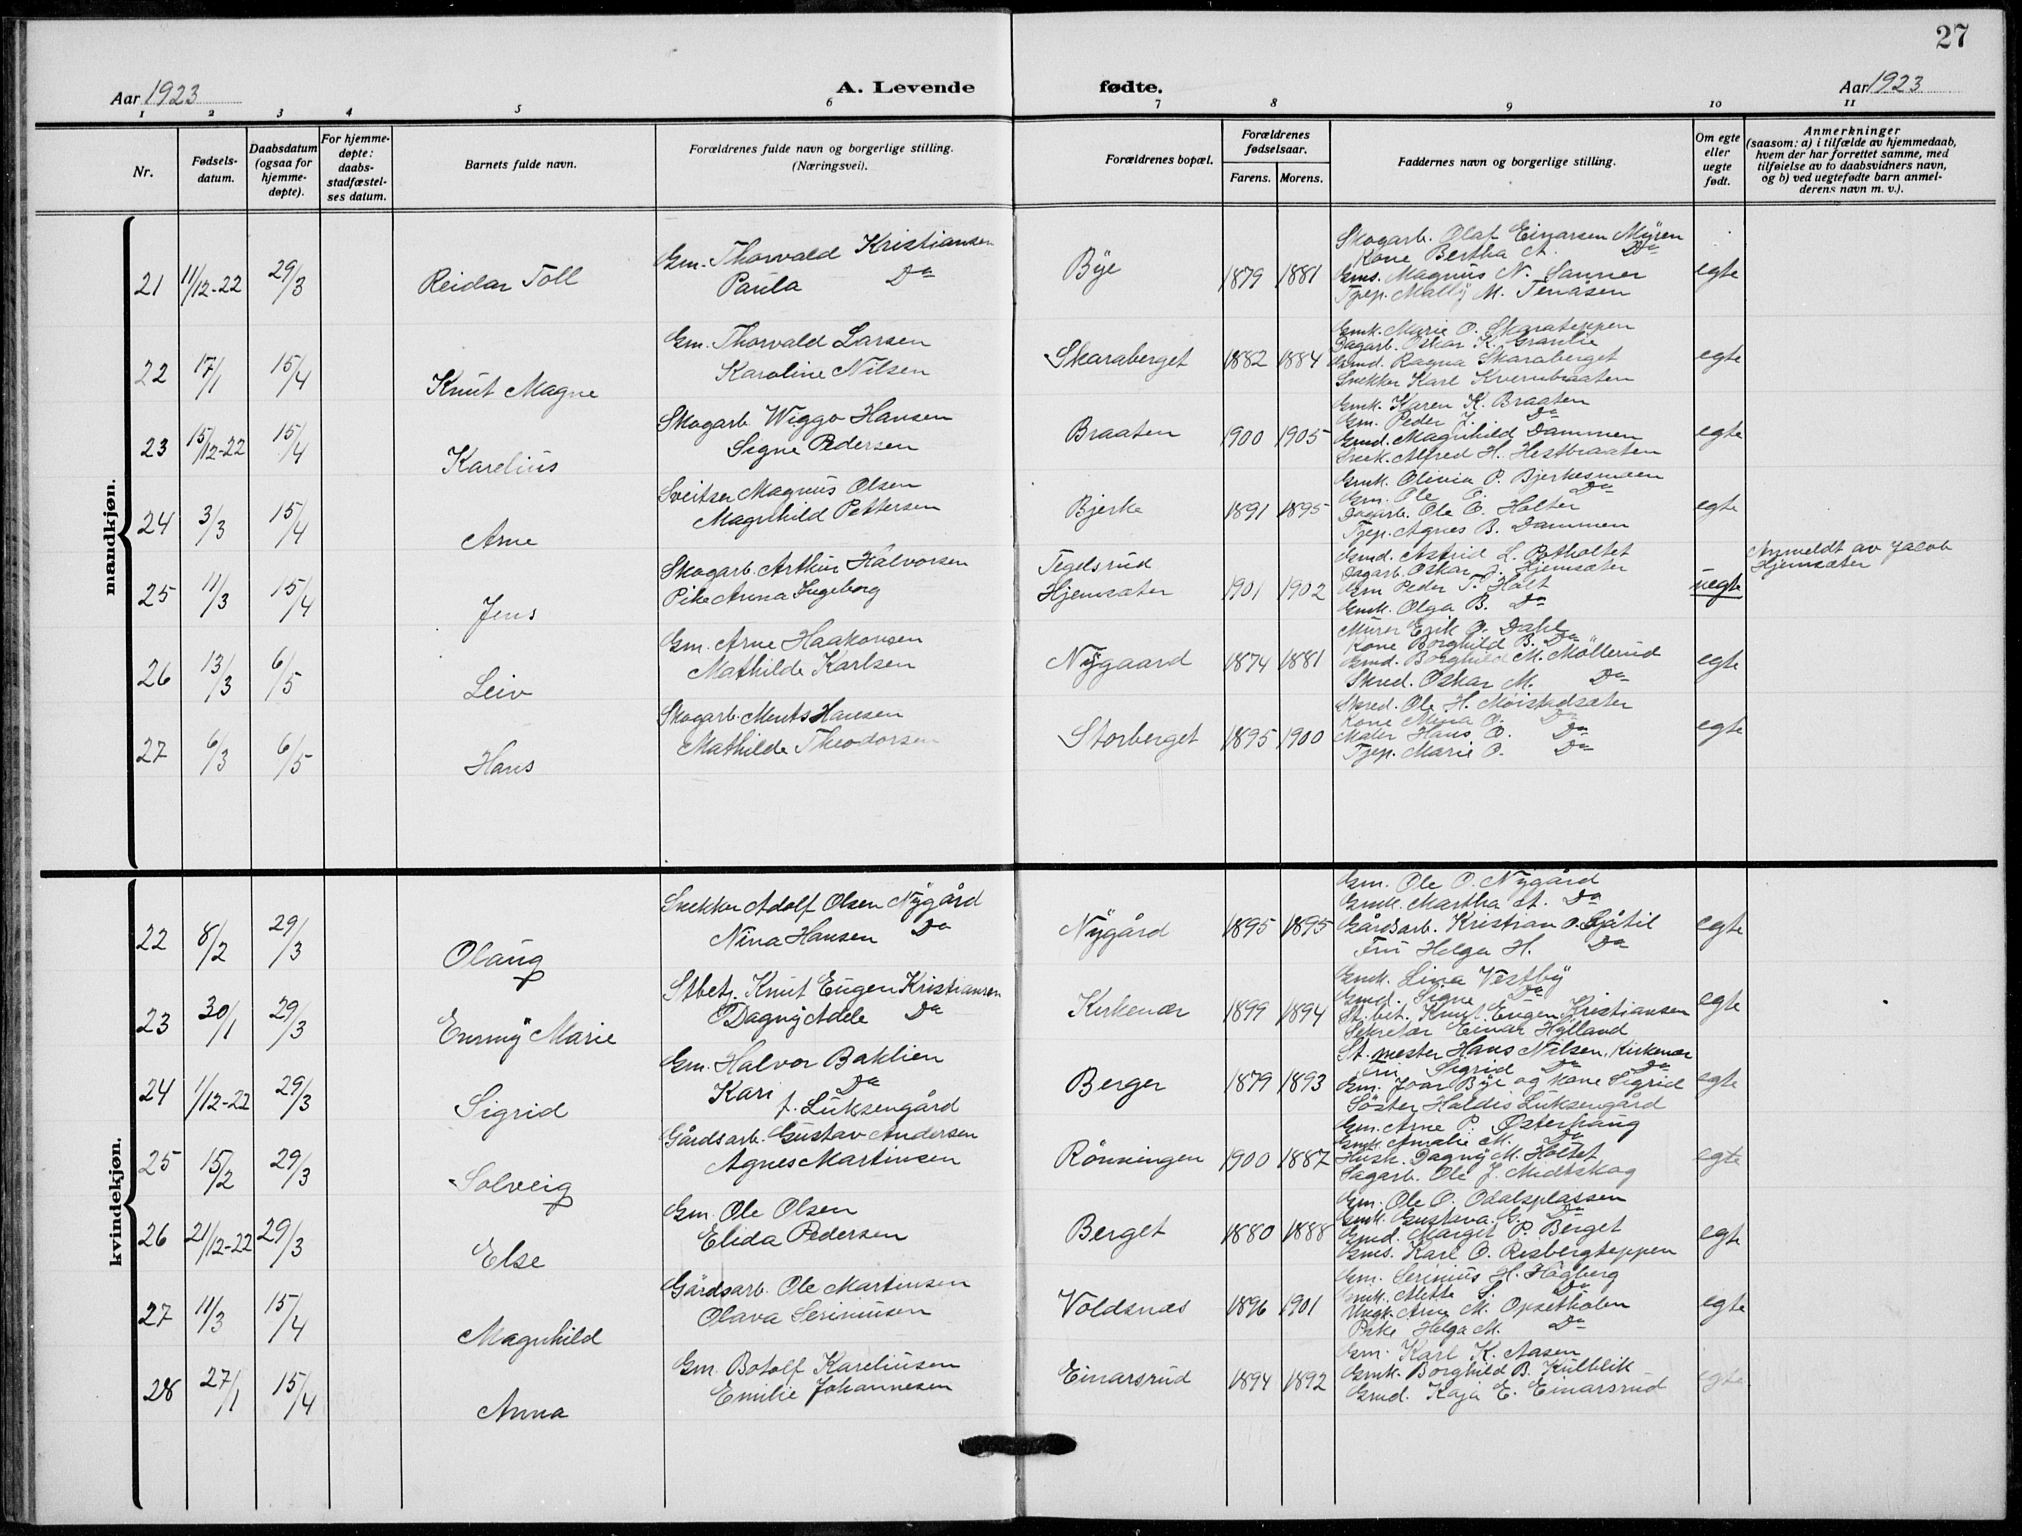 27
Aar 1923
A. Levende fødte.
Aar 1923
1 2 3 4 5 6 7 8 9 10 11
Nr.
Fødsels-
datum.
Daabsdatum
(ogsaa for
hjemme-
døpte).
For hjemme-
døpte:
daabs-
stadfæstel-
ses datum.
Barnets fulde navn.
Forældrenes fulde navn og borgerlige stilling.
(Næringsvei).
Forældrenes bopæl.
Forældrenes
fødselsaar.
Farens. Morens.
Faddernes navn og borgerlige stilling.
Om egte
eller
uegte
født.
Anmerkninger
(saasom: a) i tilfælde av hjemmedaab,
hvem der har forrettet samme, med
tilføielse av to daabsvidners navn,
og b) ved uegtefødte barn anmel-
derens navn m. v.).
mandkjøn.
21 11/12-22 29/3 Reidar Toll
Gm. Thorvald Kristiansen
Paula Do
Bÿe 1879 1881
Skogarb. Olaf Einarsen Mÿren
Kone Bertha A. Do
Gms. Magnus N. Sanner
Tjep. Mallÿ M. Tenåsen
egte
22 17/1 15/4 Knut Magne
Gm. Thorvald Larsen
Karoline Nilsen
Skaraberget 1882 1884
Gmk. Marie O. Skarateppen
Dagarb. Oskar K. Granlie
Gmd. Ragna Skaraberget
Snekker Karl Kvernbraaten
egte
23 15/12-22 15/4 Karelius
Skogarb Wiggo Hansen
Signe Pedersen
Braaten 1900 1905
Gmk. Karen K. Braaten
Gm. Peder J. Do
Gmd. Magnhild Dammen
Snek. Alfred H. Hestbraaten
egte
24 3/3 15/4 Arne
Sveitser Magnus Olsen
Magnhild Pettersen
Bjerke 1891 1895
Gmk. Olivia P. Bjerkesmoen
Gm. Ole E. Do
Dagarb. Ole E. Holter
Tjep. Agnes B. Dammen
egte
25 11/3 15/4 Jens
Skogarb. Arthur Halvorsen
Pike Anna Ingeborg
Tegelsrud
Hjemsæter 1901 1902
Gmd. Astrid L. Potholtet
Dagarb. Oskar J. Hjemsæter
Gm Peder T. Holt
Gmk. Olga B. Do
uegte
Anmeldt av Jacob
Hjemsæter
26 13/3 6/5 Leiv
Gm. Arne Haakonsen
Mathilde Karlsen
Nÿgaard 1874 1881
Murer Erik O. Dahl
Kone Borghild B. Do
Gmd. Borghild M. Möllerud
Skred. Oskar M. Do
egte
27 6/3 6/5 Hans
Skogarb. Ments Hansen
Mathilde Theodorsen
Storberget 1895 1900
Skred. Ole H. Moistadsæter
Kone Mina O. Do
Maler Hans O. Do
Tjep. Marie O. Do
egte
kvindekjøn.
22 8/2 29/3 Olaug
Snekker Adolf Olsen Nÿgård
Nina Hansen Do
Nÿgård 1895 1895
Gm. Ole O. Nÿgård
Gmk. Martha A. Do
Gårdsarb. Kristian O. Gjåtil
Fru Helga H. Do
egte
23 30/1 29/3 Emmÿ Marie
Stbetj. Knut Eugen Kristiansen
Dagnÿ Adele Do
Kirkenær 1899 1894
Gmk. Lina Vestbÿ
Gmd. Signe Do
St. bet. Knut Eugen Kristiansen
Sekretær Einar Hÿlland
egte
24 1/12-22 29/3 Sigrid
Gm. Halvor Baklien
Kari Do
f. Luksengård
Berger 1879 1893
St. mester Hans Nilsen, Kirkenær
Fru Sigrid Do Do
Gm. Joar Bÿe og kone Sigrid
Söster Haldis Luksengård
egte
25 15/2 29/3 Solveig
Gårdsarb. Gustav Andersen
Agnes Martinsen
Rönningen 1900 1887
Gm. Arne P. Österhaug
Gmk. Amalie M. Do
Husk. Dagnÿ M. Holtet
Sagarb. Ole J. Midtskog
egte
26 21/12-22 29/3 Else
Gm. Ole Olsen
Elida Pedersen
Berget 1880 1888
Gm. Ole O. Odalsplassen
Gmk. Gustava G. Do
Gmd. Margit P. Berget
Gms. Karl O. Risbergteppen
egte
27 11/3 15/4 Magnhild
Gårdsarb. Ole Martinsen
Olava Serinusen
Voldsnæs 1896 1901
Gm. Serinius H. Högberg
Gmk. Alette S. Do
Ungk. Arne M. Opsetholen
Pike Helga M. Do
egte
28 27/1 15/4 Anna
Gm. Botolf Kareliusen
Emilie Johannesen
Einarsrud 1894 1892
Gm. Karl K. Aasen
Gmk. Borghild B. Kulblik
Gmd. Kaja E. Einarsrud
egte